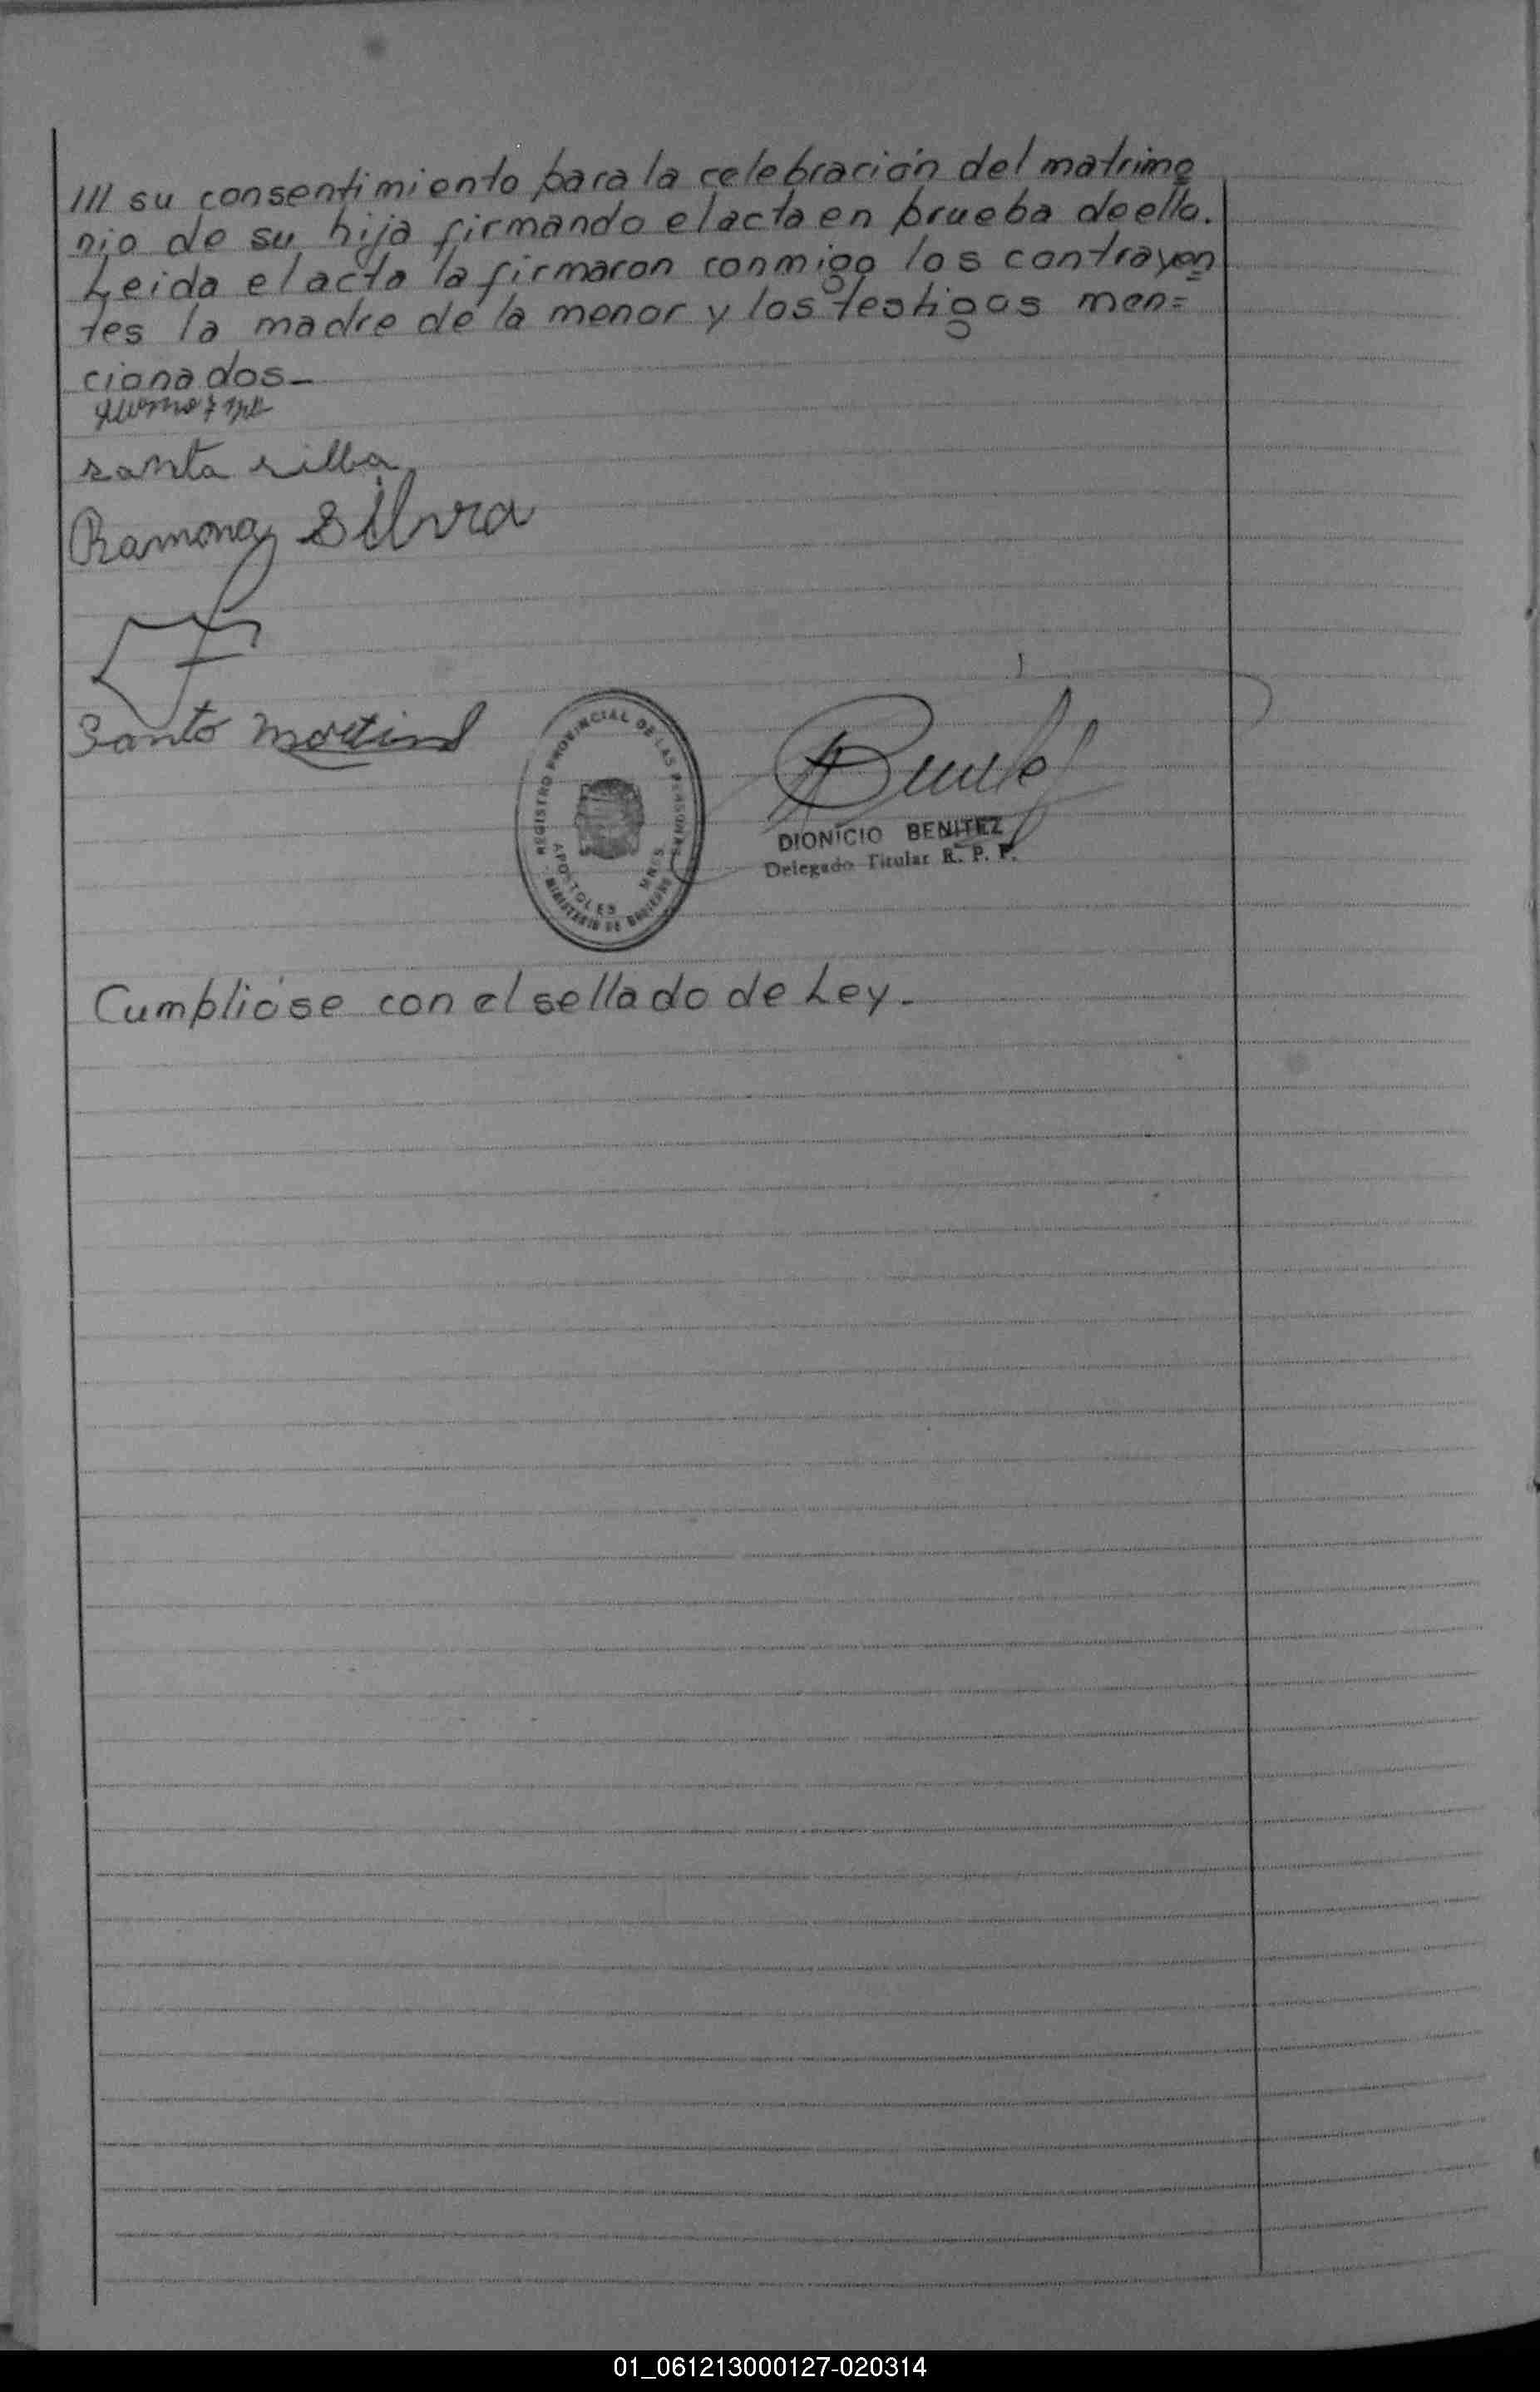 /// su consentimiento para la celebración del matrimo
nio de su hija firmando el acta en prueba de ello.
Leida el acta la firmaron conmigo los contrayen=
tes la madre de la menor y los testigos men=
cionados_
santa silba
Ramona Silvra
Santo
REGISTRO PROVINCIAL DE LAS PERSONAS
APOSTOLES MNES.
MINISTERIO DE GOBIERNO
DIONICIO BENITEZ
Delegado Titular R. P. P.
Cumplióse con el sellado de Ley.-
01_061213000127-020314